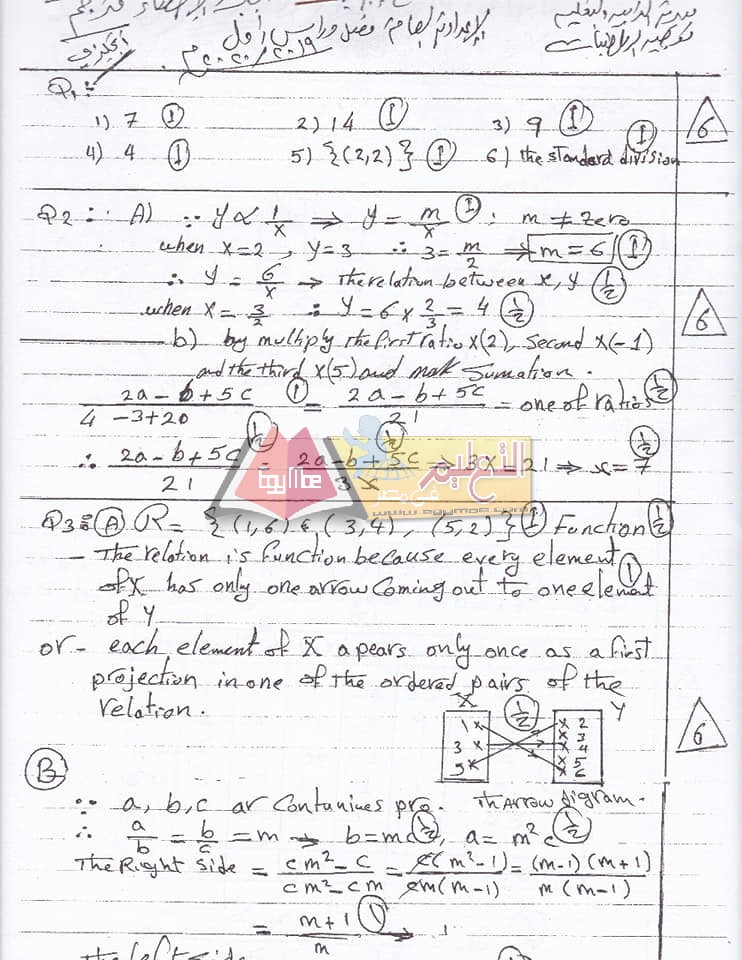 مديرية التربية والتعليم
توجيه الرياضيات
الإعدادية العامة فصل دراسي أول
٢٠١٩/٢٠٢٠م
Q1:
1) 7 ① 2) 14 ① 3) 9 ①
4) 4 ① 5) {(2,2)} ① 6) the standard division ①
6
Q2:: A) ∵ y ∝ 1/x ⟹ y = m/x ① : m ≠ Zero
when x=2 , y=3 ∴ 3 = m/2 ⟹ m = 6 ①
∴ y = 6/x → The relation between x, y ½
when x = 3/2 ∴ y = 6 × 2/3 = 4 ½
6
b) by multiply the first ratio x(2), Second x(-1)
and the third x(5) and mak Sumation.
2a - b + 5c / 4 - 3 + 20 ① = 2a - b + 5c / 21 = one of ratios ½
∴ 2a - b + 5c / 21 ½ = 2a - b + 5c / 3x ½ ⟹ 3x = 21 ⟹ x = 7 ½
التعليم في مصر
egymoe
www.egymoe.com
Q3: (A) R = {(1,6), (3,4), (5,2)} ① Function ½
- The relation is function because every element ①
of X has only one arrow Coming out to one element
of Y
or - each element of X apears only once as a first
projection in one of the ordered pairs of the
relation.
X ½ Y
1 2
3
3 4
5
5 6
6
Th Arrow digram.
(B)
∵ a, b, c ar Contunines pro.
∴ a/b = b/c = m → b = mc ½, a = m²c ½
The Right Side = cm² - c / cm² - cm = c(m² - 1) / cm(m - 1) = (m-1)(m+1) / m(m-1)
= m+1 / m ① → 1
the left side